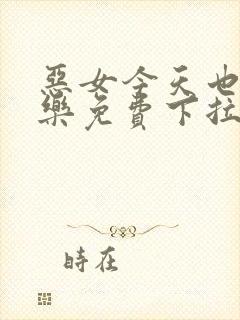 惡女今天也
樂免費下拉
時在